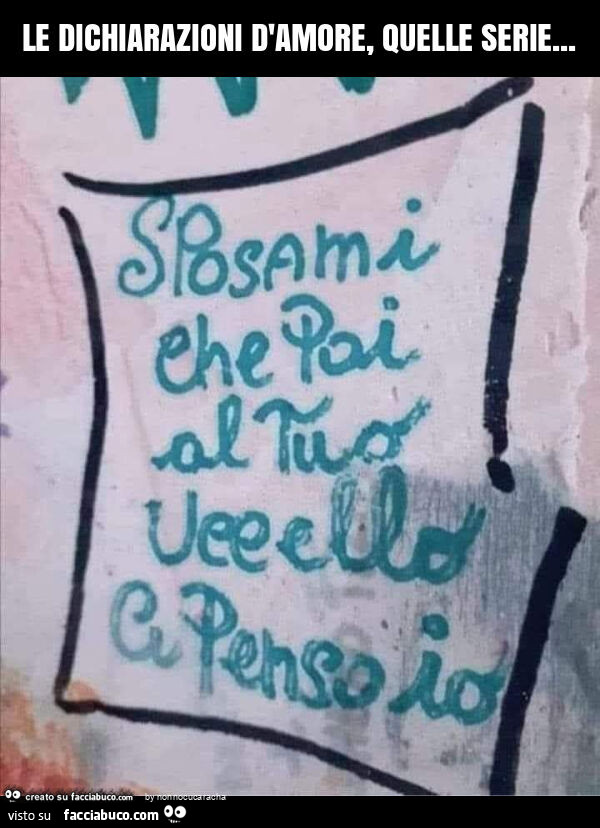 LE DICHIARAZIONI D'AMORE, QUELLE SERIE...
SPosAmi
che Poi
al Tuo
Uccello
Ci Penso io
creato su facciabuco.com by nonnocucaracha
visto su facciabuco.com